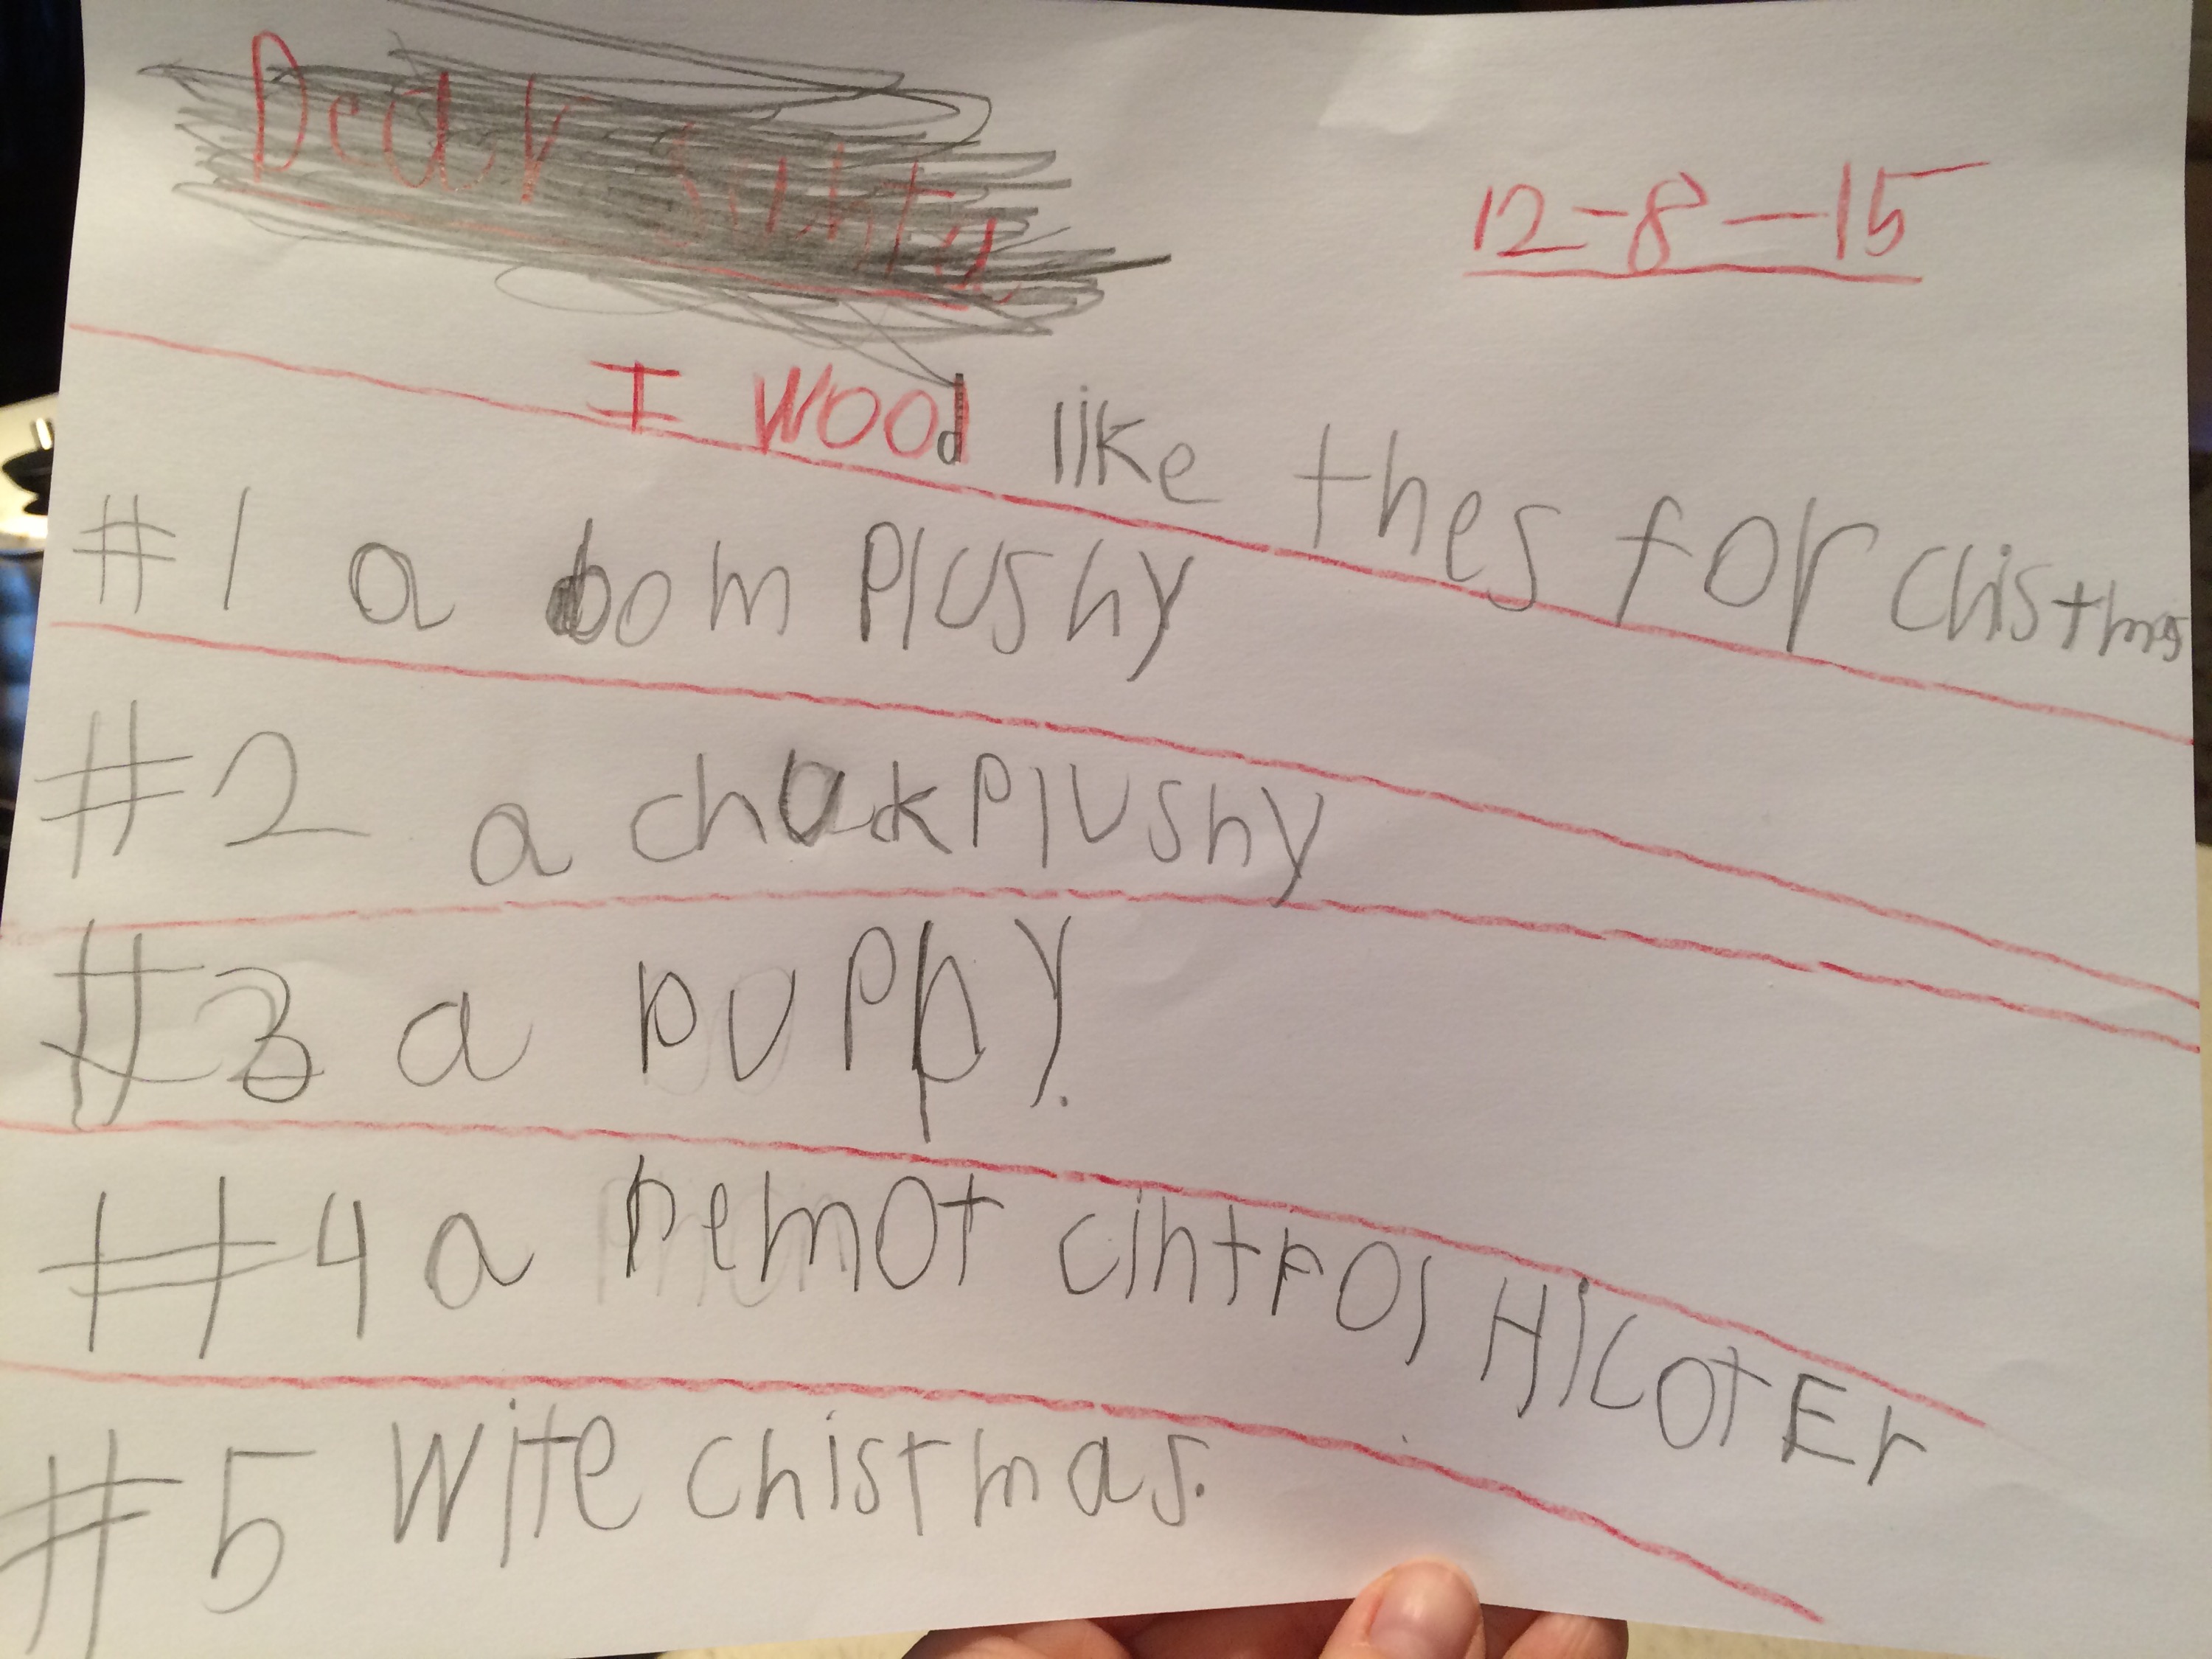 Dear Santa
12-8-15
I wood like thes for chistmas
#1 a bom plushy
#2 a chuck plushy
#3 a puppy.
#4 a remot cintrol HilcotEr
#5 wite chistmas.